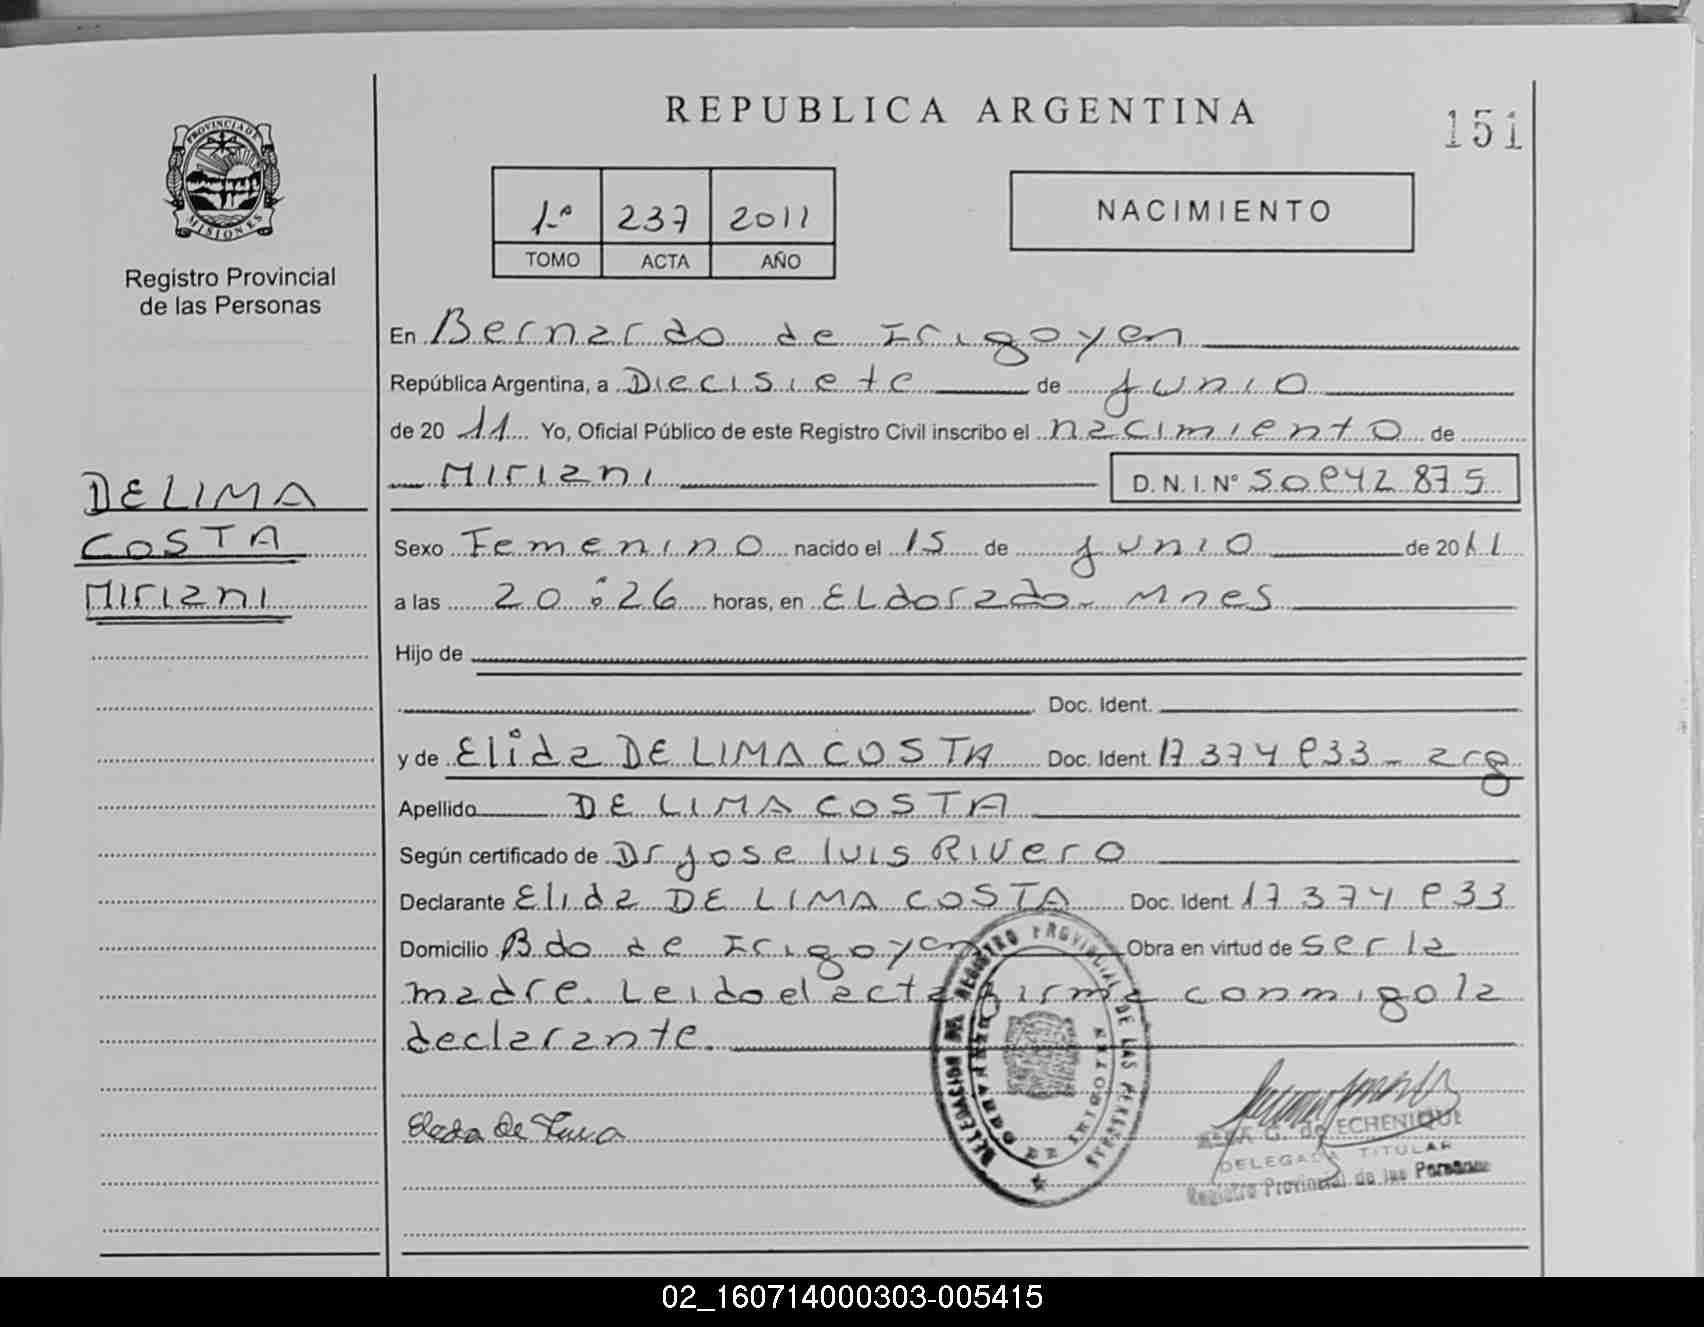 REPUBLICA ARGENTINA
151
PROVINCIA DE MISIONES
Registro Provincial
de las Personas
1º 237 2011
TOMO ACTA AÑO
NACIMIENTO
En Bernardo de Irigoyen
República Argentina, a Diecisiete de junio
de 20 11 Yo, Oficial Público de este Registro Civil inscribo el nacimiento de
Miriani D. N. I. Nº
DE LIMA
COSTA
Miriani
Sexo Femenino nacido el 15 de junio de 2011
a las 20:26 horas, en ELdorado - Mnes
Hijo de
Doc. Ident.
y de Elida DE LIMA COSTA Doc. Ident. arg
Apellido DE LIMA COSTA
Según certificado de Dr jose luis Rivero
Declarante Elida DE LIMA COSTA Doc. Ident.
Domicilio Bdo de Irigoyen Obra en virtud de ser la
madre. Leido el acta firma conmigo la
declarante.
DELEGACION DEL REGISTRO PROVINCIAL DE LAS PERSONAS
BERNARDO DE IRIGOYEN
de ECHENIQUE
DELEGADA TITULAR
Registro Provincial de las Personas
02_160714000303-005415